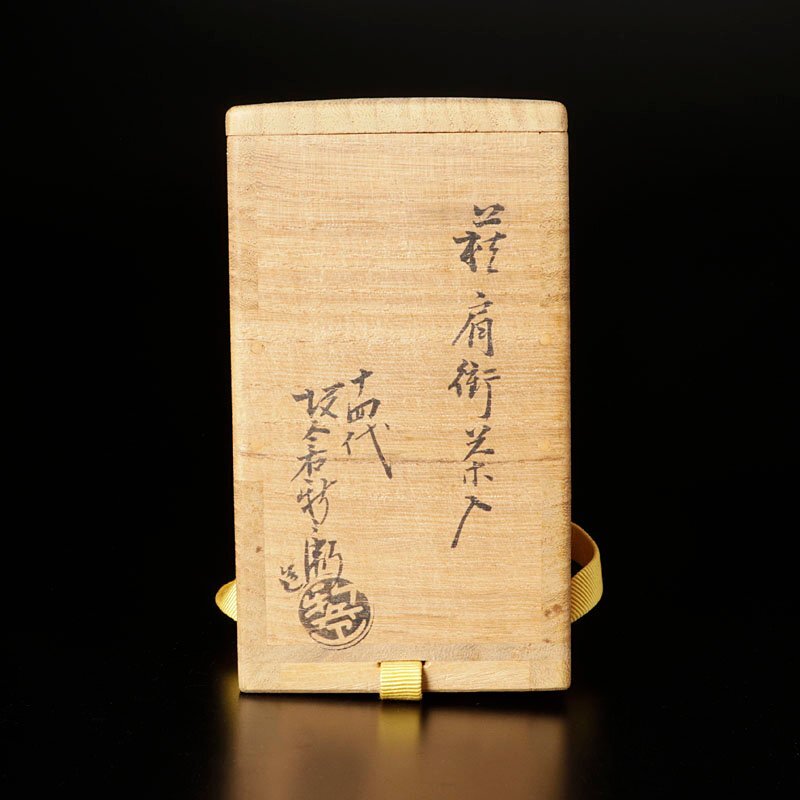 萩肩衝茶入
十四代
坂倉新兵衛
造